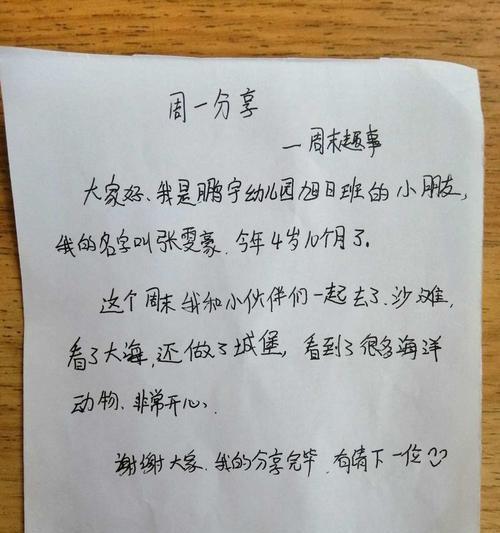 周一分享
—周末趣事
大家好、我是鹏宇幼儿园旭日班的小朋友,
我的名字叫张雯豪.今年4岁10个月了。
这个周末我和小伙伴们一起去了.沙滩,
看了大海,还做了城堡,看到了很多海洋
动物、非常开心、
谢谢大家.我的分享完毕.有请下一位